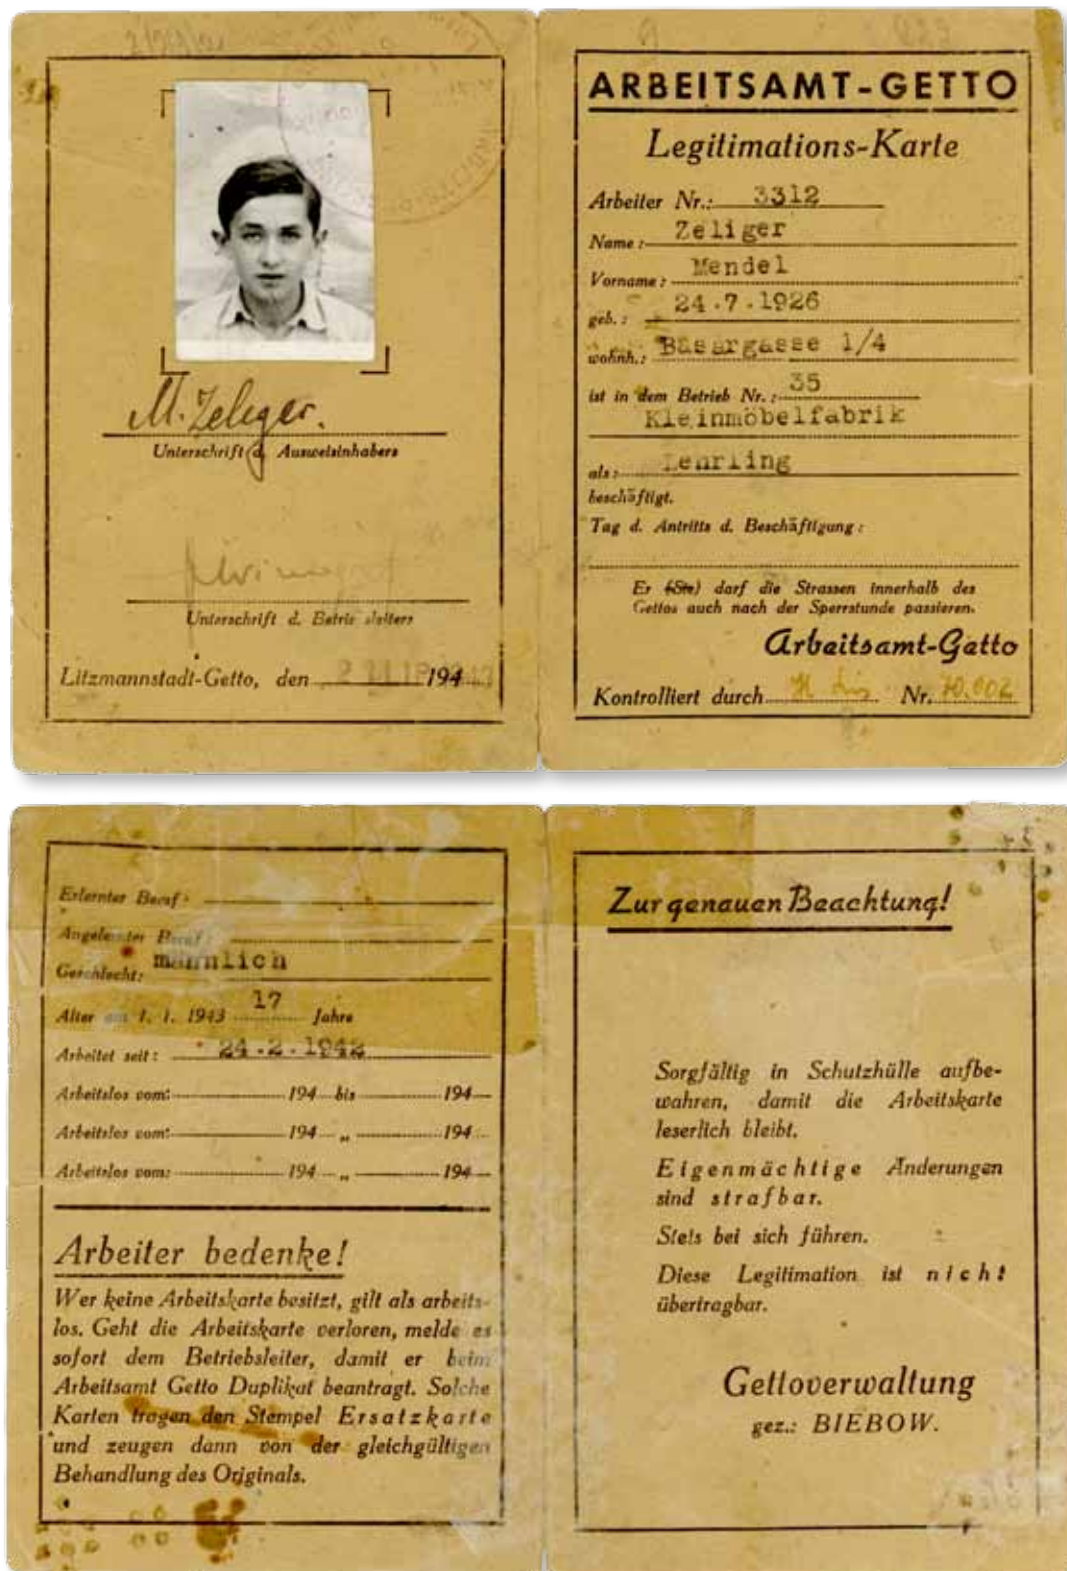 M. Zeliger.
Unterschrift d. Ausweisinhabers
Unterschrift d. Betriebsleiters
Litzmannstadt-Getto, den 194
ARBEITSAMT-GETTO
Legitimations-Karte
Arbeiter Nr.: 3312
Name: Zeliger
Vorname: Mendel
geb.: 24.7.1926
wohnh.: Basargasse 1/4
ist in dem Betrieb Nr.: 35
Kleinmöbelfabrik
als: Lehrling
beschäftigt.
Tag d. Antritts d. Beschäftigung:
Er (Sie) darf die Strassen innerhalb des
Gettos auch nach der Sperrstunde passieren.
Arbeitsamt-Getto
Kontrolliert durch Nr. 70.002
Erlernter Beruf:
Angelernter Beruf:
Geschlecht: männlich
Alter am 1. 1. 1943 17 Jahre
Arbeitet seit: 24.2.1942
Arbeitslos vom: 194 bis 194
Arbeitslos vom: 194 „ 194
Arbeitslos vom: 194 „ 194
Arbeiter bedenke!
Wer keine Arbeitskarte besitzt, gilt als arbeits-
los. Geht die Arbeitskarte verloren, melde es
sofort dem Betriebsleiter, damit er beim
Arbeitsamt Getto Duplikat beantragt. Solche
Karten tragen den Stempel Ersatzkarte
und zeugen dann von der gleichgültigen
Behandlung des Originals.
Zur genauen Beachtung!
Sorgfältig in Schutzhülle aufbe-
wahren, damit die Arbeitskarte
leserlich bleibt.
Eigenmächtige Änderungen
sind strafbar.
Stets bei sich führen.
Diese Legitimation ist nicht
übertragbar.
Gettoverwaltung
gez.: BIEBOW.